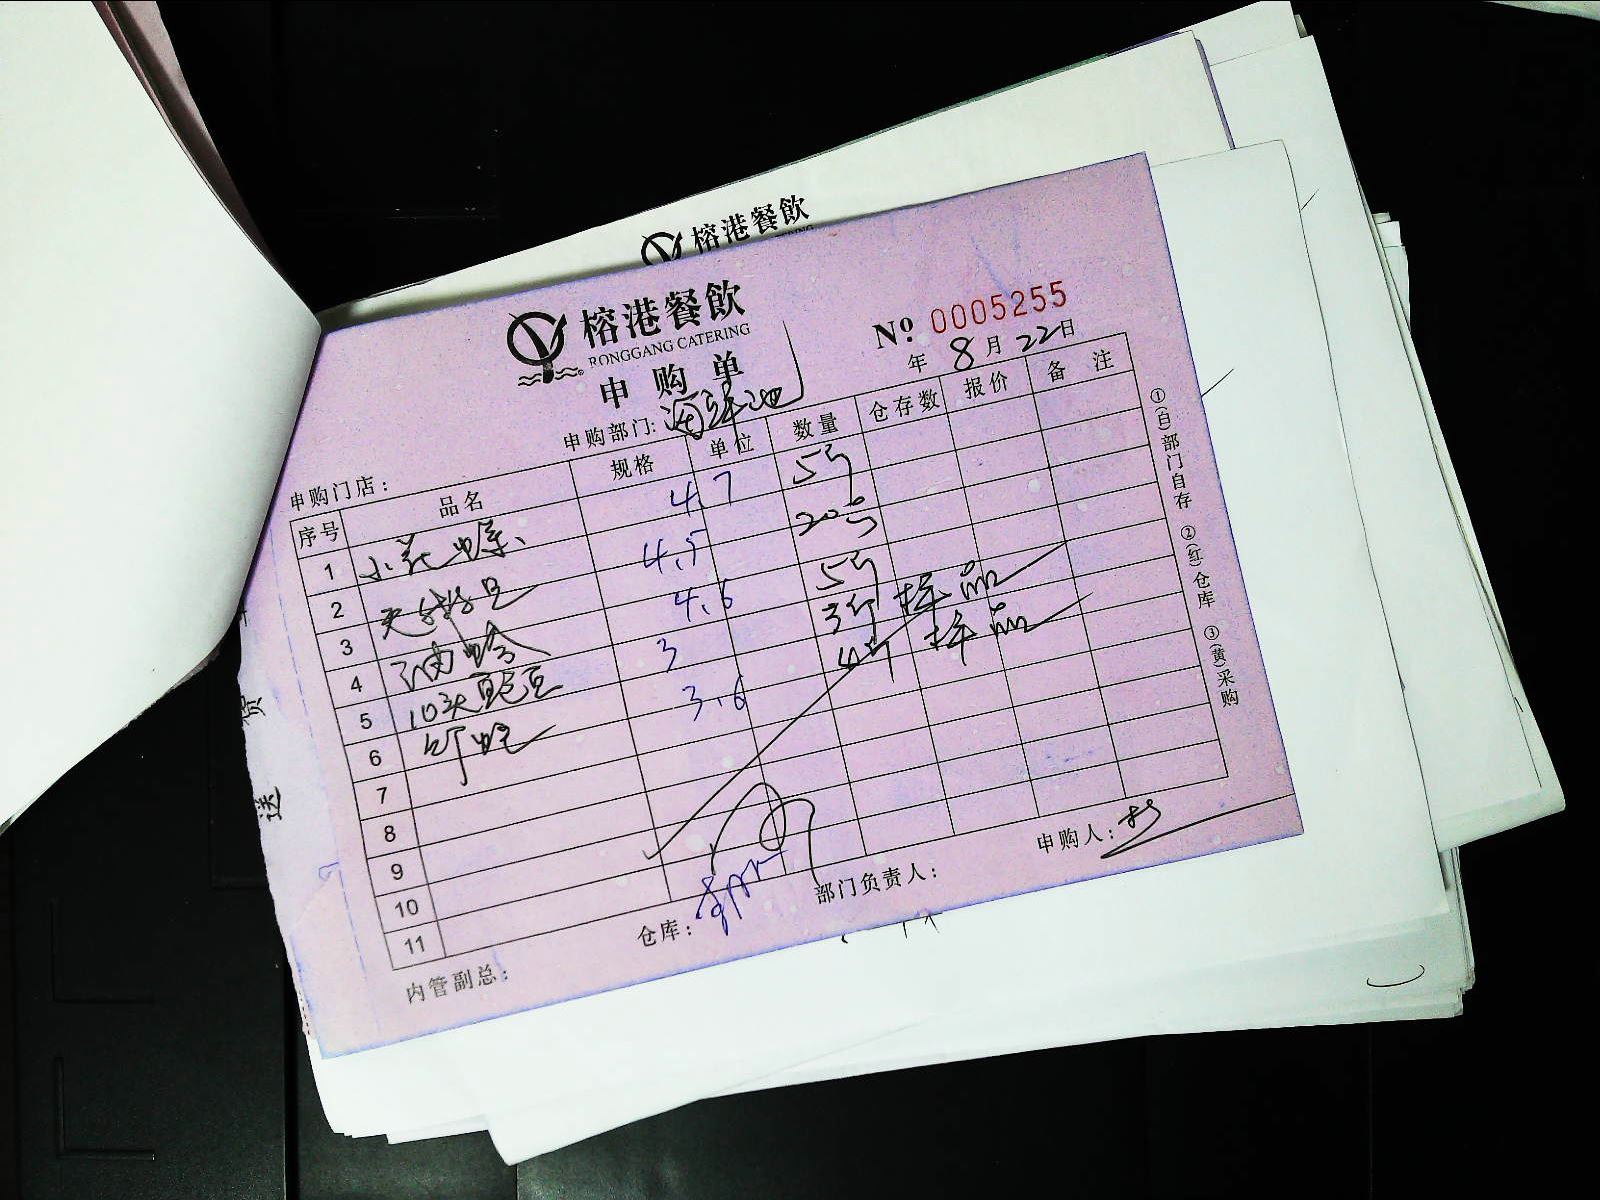 榕港餐飲
榕港餐飲
RONGGANG CATERING
申购单
No 0005255
年 8 月 22 日
申购门店：
申购部门: 海鲜池
序号 品名 规格 单位 数量 仓存数 报价 备注
1 小花螺 4.7 5斤
2 4.5 20斤
3 油蛤 4.6 5斤
4 10头鲍鱼 3 3斤 样品
5 3.6 4斤 样品
6
7
8
9
10
11
仓库:
部门负责人:
申购人:
内管副总:
①(白)部门自存 ②(红)仓库 ③(黄)采购
货
送